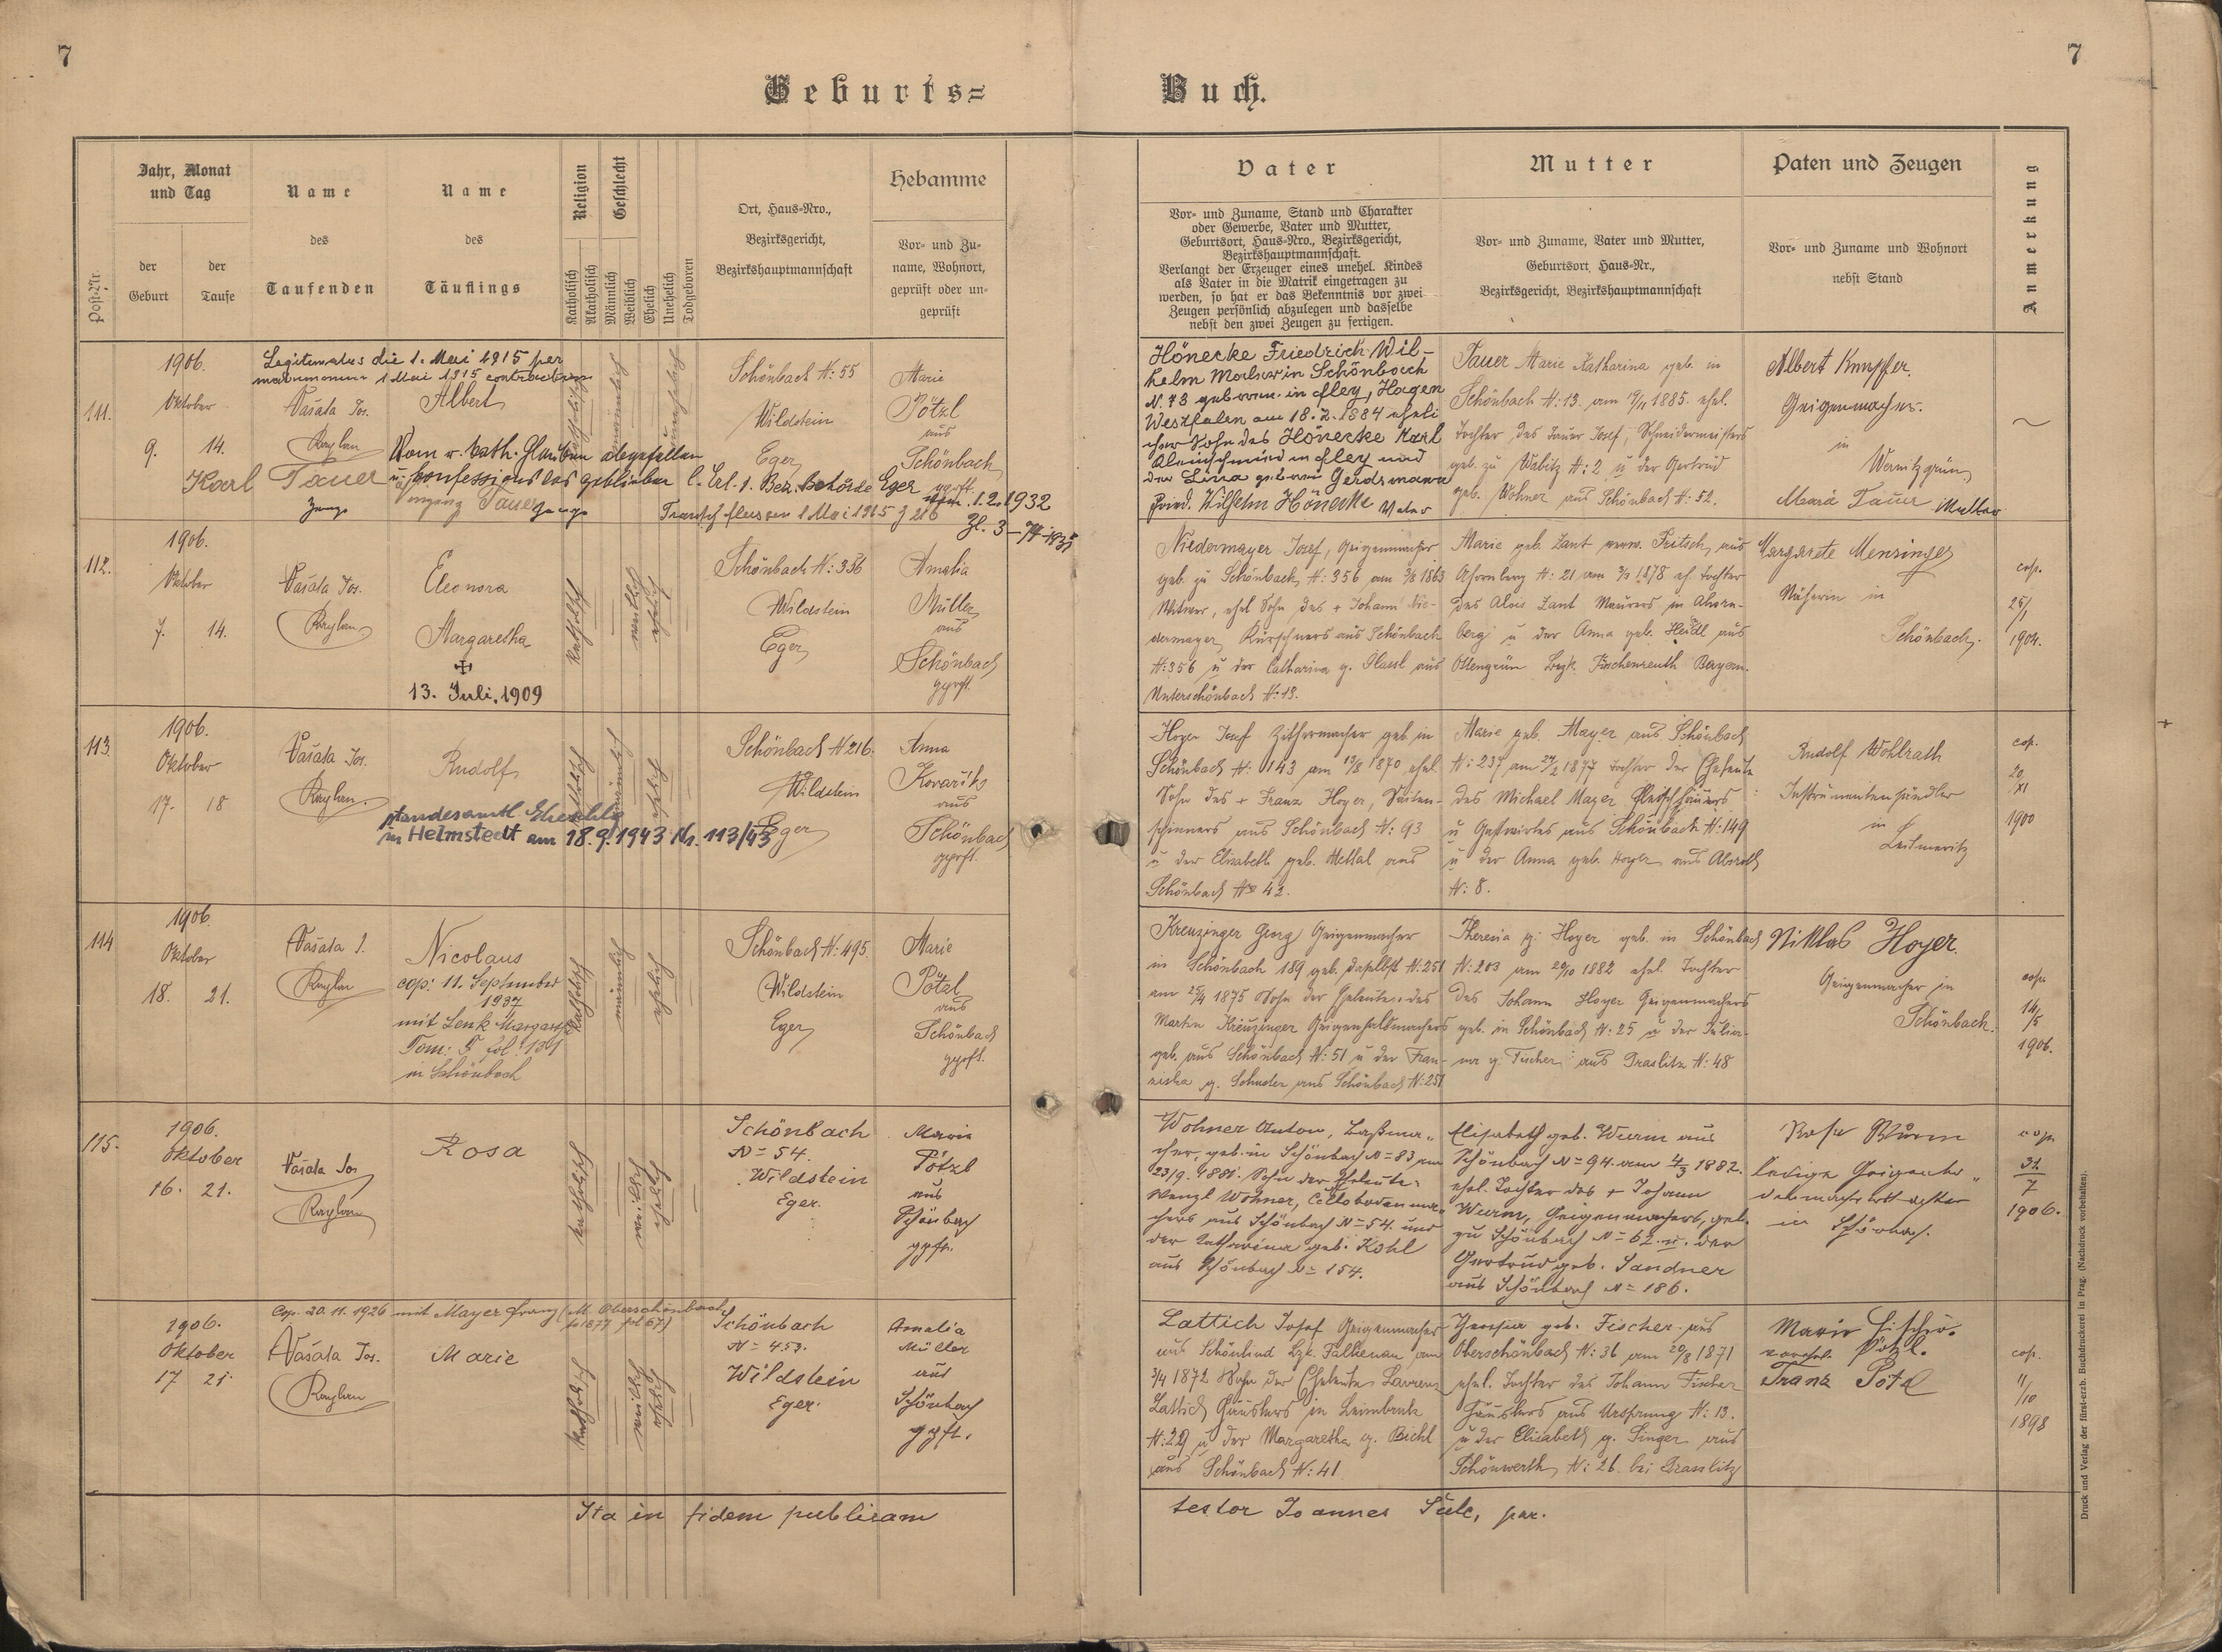 7
7
Geburts=
Buch.
Post-Nr.
Jahr, Monat
und Tag
der
Geburt
der
Taufe
Name
des
Taufenden
Name
des
Täuflings
Religion
Katholisch
Akatholisch
Geschlecht
Männlich
Weiblich
Ehelich
Unehelich
Todgeboren
Ort, Haus=Nro.,
Bezirksgericht,
Bezirkshauptmannschaft
Hebamme
Vor= und Zu=
name, Wohnort,
geprüft oder un=
geprüft
Vater
Vor= und Zuname, Stand und Charakter
oder Gewerbe, Vater und Mutter,
Geburtsort, Haus=Nro., Bezirksgericht,
Bezirkshauptmannschaft.
Verlangt der Erzeuger eines unehel. Kindes
als Vater in die Matrik eingetragen zu
werden, so hat er das Bekenntnis vor zwei
Zeugen persönlich abzulegen und dasselbe
nebst den zwei Zeugen zu fertigen.
Mutter
Vor= und Zuname, Vater und Mutter,
Geburtsort, Haus=Nr.,
Bezirksgericht, Bezirkshauptmannschaft
Paten und Zeugen
Vor= und Zuname und Wohnort
nebst Stand
Anmerkung
111.
1906.
Oktober
9. 14.
Legitimatus die 1. Mai 1915 per
matrimonium 1 Mai 1915 contractum
Vašata Jos.
Kaplan
Albert
Vom r. kath. Glauben abgefallen
u. konfessionslos geblieben l. Erl. d. Bez. Behörde Eger
1.2.1932
Karl Tauer
Zeuge
Tauer Zeuge
katholisch
männlich
unehelich
Schönbach N: 55
Wildstein
Eger
Marie
Pötzl
aus
Schönbach
gprft.
Hönecke Friedrich Wil-
helm in Schönbach
N. 73 geboren in fley, Hagen
Westfalen am 18.2.1884 eheli
cher Sohn des Hönecke Karl
in fley und
der Lina geboren Gerdsmann
Fried. Wilhelm Hönecke Vater
Tauer Marie Katharina geb. in
Schönbach N: 13. am 19/11 1885. ehel.
Tochter des Tauer Josef, Schneidermeisters
geb. zu Wabitz N: 2 u der Gertrud
geb. Wohner aus Schönbach N: 52.
Albert Knüpfer.
Geigenmacher
in
Wernitzgrün
Maria Tauer Mutter
112.
1906.
Oktober
7. 14.
Vašata Jos.
Kaplan
Eleonora
Margaretha
✠
13. Juli, 1909
katholisch
weiblich
ehelich
Schönbach N: 356
Wildstein
Eger
Amalia
Müller
aus
Schönbach
gprft.
Niedermayer Josef, Geigenmacher
geb. zu Schönbach, N: 356 am 3/8 1863
Witwer, ehel Sohn des + Johann Nie-
dermayer, Kürschners aus Schönbach
N: 356 u der Catharina g. Plassl aus
Unterschönbach N: 13.
Marie geb. Zant verw. Fritsch, aus
Ahornberg N: 21 am 1878 eh. Tochter
des Alois Zant Maurers in Ahorn-
berg u der Anna geb. Heidl aus
Ottengrün Bayern.
Margarete Mensinger
Näherin in
Schönbach.
cop.
25/1
1904.
113.
1906.
Oktober
17. 18
Vašata Jos.
Kaplan.
Rudolf
standesamtl. Eheschlg
in Helmstedt am 18.9.1943 Nr. 113/43
katholisch
männlich
ehelich
Schönbach N 216.
Wildstein
Eger
Anna
Kovařiks
aus
Schönbach
gprft.
Hoyer Josef Zithermacher geb in
Schönbach N: 143 am 13/8 1870 ehel.
Sohn des + Franz Hoyer, Saiten-
spinners aus Schönbach N: 93
u der Elisabeth geb. Mettal aus
Schönbach Nº 42.
Marie geb. Mayer aus Schönbach
N: 237 am 27/2 1877 Tochter der Eheleute
des Michael Mayer Fleischhauers
u Gastwirtes aus Schönbach N: 149
u der Anna geb. Hoyer aus Absroth
N: 8.
Rudolf Wohlrath
Instrumentenhändler
in
Leitmeritz
cop.
20/XI
1900
114
1906
Oktober
18. 21.
Vašata J.
Kaplan
Nicolaus
cop: 11. September
1937
mit Lenk Margareth
Tom: F fol: 131
in Schönbach
katholisch
männlich
ehelich
Schönbach N: 495.
Wildstein
Eger
Marie
Pötzl
aus
Schönbach
gprft.
Kreuzinger Georg Geigenmacher
in Schönbach 189 geb. daselbst N: 251
am 25/4 1875 Sohn der Eheleute: des
Martin Kreuzinger Geigenhalsmachers
geb. aus Schönbach N: 51 u der Fran-
ziska g. Schuder aus Schönbach N: 251
Theresia g. Hoyer geb. in Schönbach
N: 203 am 20/10 1882 ehel. Tochter
des Johann Hoyer Geigenmachers
geb. in Schönbach N: 25 u der Julia-
na g. Fischer aus Graslitz N: 48
Niklas Hoyer.
Geigenmacher in
Schönbach.
cop.
14/5
1906.
115.
1906.
Oktober
16. 21.
Vašata Jos
Kaplan
Rosa
katholisch
weiblich
ehelich
Schönbach
N= 54.
Wildstein
Eger.
Marie
Pötzl
aus
Schönbach
gpft.
Wohner Anton, Baßma„
cher, geb. in Schönbach N= 83 am
23/9. 1881. Sohn der Eheleute:
Wenzl Wohner, Cellobodenma„
chers aus Schönbach N= 54. und
der Katharina geb. Kohl
aus Schönbach N= 154.
Elisabeth geb. Wurm aus
Schönbach N= 94. am 4/3 1882.
ehel. Tochter des + Johann
Wurm, Geigenmachers, geb.
zu Schönbach N= 62. u. der
Gertrud geb. Sandner
aus Schönbach N= 186.
Rosa Wurm
ledige
in Schönbach.
cop.
31/7
1906.
1906.
Oktober
17 21.
Cop. 20.11.1926 mit Mayer Franz (M. Oberschönbach
fol 67)
Vašata Jos.
Kaplan
Marie
katholisch
weiblich
ehelich
Schönbach
N= 453.
Wildstein
Eger.
Amalia
Müller
aus
Schönbach
gpft.
Lattich Josef Geigenmacher
aus Schönlind Bzk. Falkenau am
3/4 1872 Sohn der Eheleute Laurenz
Lattich Häuslers in Leimbruk
N: 29 u der Margaretha g. Bichl
aus Schönbach N: 41
geb. Fischer aus
Oberschönbach N: 36 am 20/8 1871
ehel. Tochter des Johann Fischer
Häuslers aus Ursprung N: 13.
u der Elisabeth g. Singer aus
Schönwerth N: 26. bei Grasslitz
Marie
Pötzl.
Franz Pötzl
cop.
11/10
1898
Ita in fidem publicam
testor Joannes Šulc, par.
Druck und Verlag der fürst-erzb. Buchdruckerei in Prag. (Nachdruck vorbehalten).